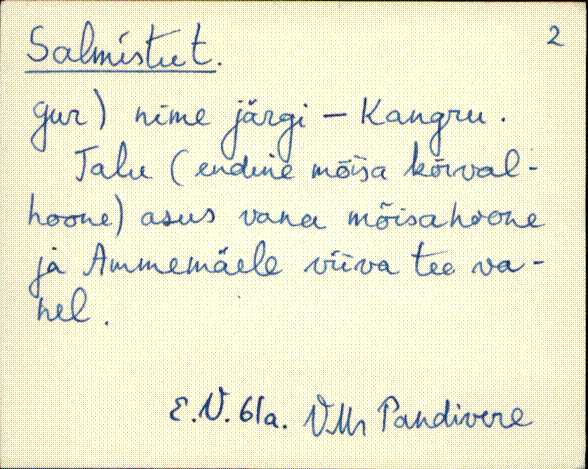 Salmistut.
2
gur) nime järgi - Kangru.
Talu (endine mõisa kõrval-
hoone) asus vana mõisahoone
ja Ammemäele viiva tee va-
hel.
E.V. 61a. VMr Pandivere